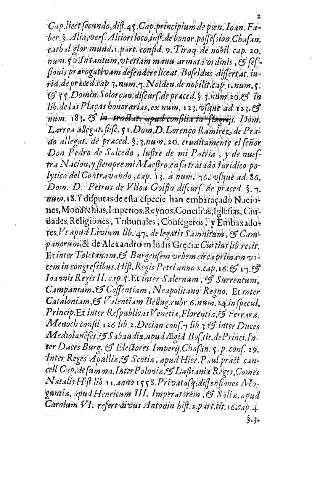 2
Cap. licet secundo, dist. 45. Cap. principium de pœn. Ioan. Fa-
ber. §. Alio, vers. Aliter loco, inst. de honor. possession. Chasan.
cathal. glor. mund. 1. part. consid. 9. Tiraq. de nobil. cap. 20.
num. 50. tantum, ut etiam manu armata ordinis, & ses-
sionis prærogativam defendere liceat. Boseldus dissertat. iu-
rid. de præced. cap. 3. num. 7. Nolden. de nobilit. cap. 1. num. 5.
& 55. Domin. Solorçan. discurs. de præced. §. 3. num. 20. & in
lib. de las Plaças honorarias, ex num. 123. usque ad 123. &
num. 183. & Dom.
Larrea allegat. fisc. 51. Dom. D. Lorenço Ramirez de Pra-
do allegat. de præced. §. 3. num. 20. eruditamente el señor
Don Pedro de Salcedo, lustre de mi Patria, y de nues-
tra Nacion, y siempre mi Maestro, en su tratado Iuridico po-
lytico del Contravando, cap. 13. à num. 76. usque ad 86.
Dom. D. Petrus de Ulloa Golfin discurs. de præced. §. 7.
num. 18. Y disputas de esta especie han embaraçado Nacio-
nes, Monarchias, Imperios, Reynos, Concilios, Iglesias, Ciu-
dades, Religiones, Tribunales, Consegeros, y Embaxado-
res, Ut apud Livium lib. 47. de legatis Samnitum, & Cam-
panorum & de Alexandro in ludis Græciæ Curtius lib. recit.
Et inter Toletanam, & Burgensem urbem circa primam vo-
cem in congressibus. Hist. Regis Petri anno 2. cap. 16. & 17. &
Ioannis Regis II. cap. 5. Et inter Salernam, & Surrentum,
Campaniam, & Cossentiam, Neapolitani Regno. Et inter
Cataloniam, & Valentiam Bellug. rubr. 6. num. 24. in specul.
Princip. Et inter Respublicas Venetiæ, Florentiæ, & Ferraræ.
Menoch. consil. 126. lib. 2. Decian. cons. 7. lib. 3. & inter Duces
Mediolanenses, & Sabaudiæ, apud Ægid. Bos. tit. de Princi. In-
ter Duces Burg. & Electores Imperij. Chasan. 5. p. cons. 29.
Inter Reges Angliæ, & Scotiæ, apud Hier. Paul. pract. can-
cell. Cap. de summa. Inter Poloniæ, & Lusitaniæ Reges, Comes
Natalis Hist. lib. 11. anno 1558. Privatosq; dissensiones Mo-
guntiæ, apud Henricum III. Imperatorem, & apud
Carolum VI. refert divus Antonin. hist. 2. part. tit. 16. cap. 4.
§. 3.